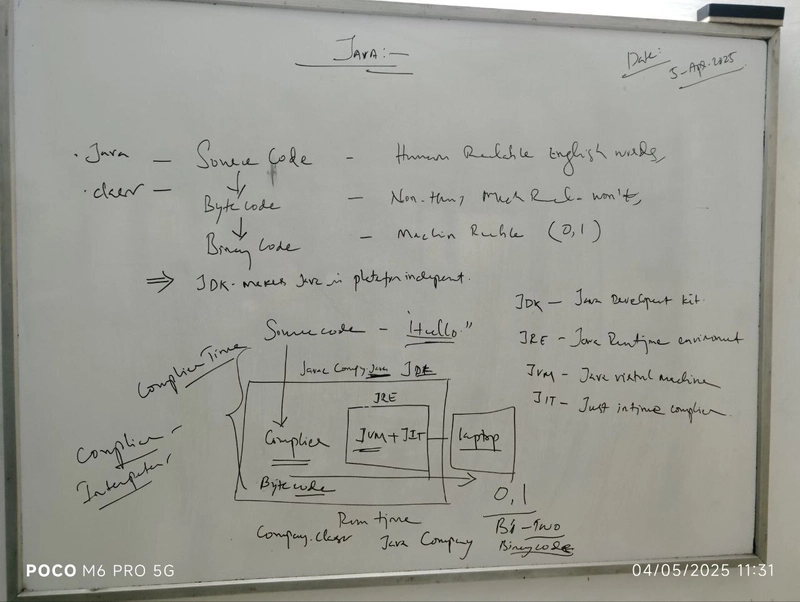 JAVA:-
Date:
5-Apr-2025
.Java - Source Code - Human Readable English words,
.class - Byte code - Non-Hum, Mach Read- won't,
Binary Code - Machin Reable (0,1)
⇒ JDK- makes Java in platform independent.
JDK - Java Development kit.
JRE - Java Runtime environment
JVM - Java virtual machine
JIT - Just in time complier
Source code - "Hello"
Complier Time
Javac Company.Java JDK
JRE
Complier
JVM + JIT
laptop
Complier -
Interpreter -
Byte code
0,1
Run time
Bi - Two
Company.class Java Company Binary code
POCO M6 PRO 5G
04/05/2025 11:31